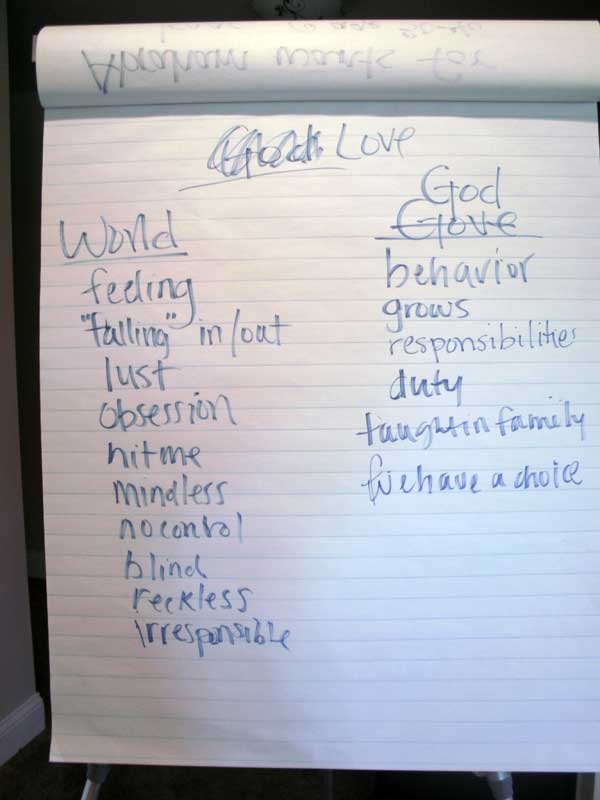 Abraham wants for
Love
World
feeling
"falling" in/out
lust
obsession
hit me
mindless
no control
blind
reckless
irresponsible
God
Glove
behavior
grows
responsibilities
duty
taught in family
we have a choice